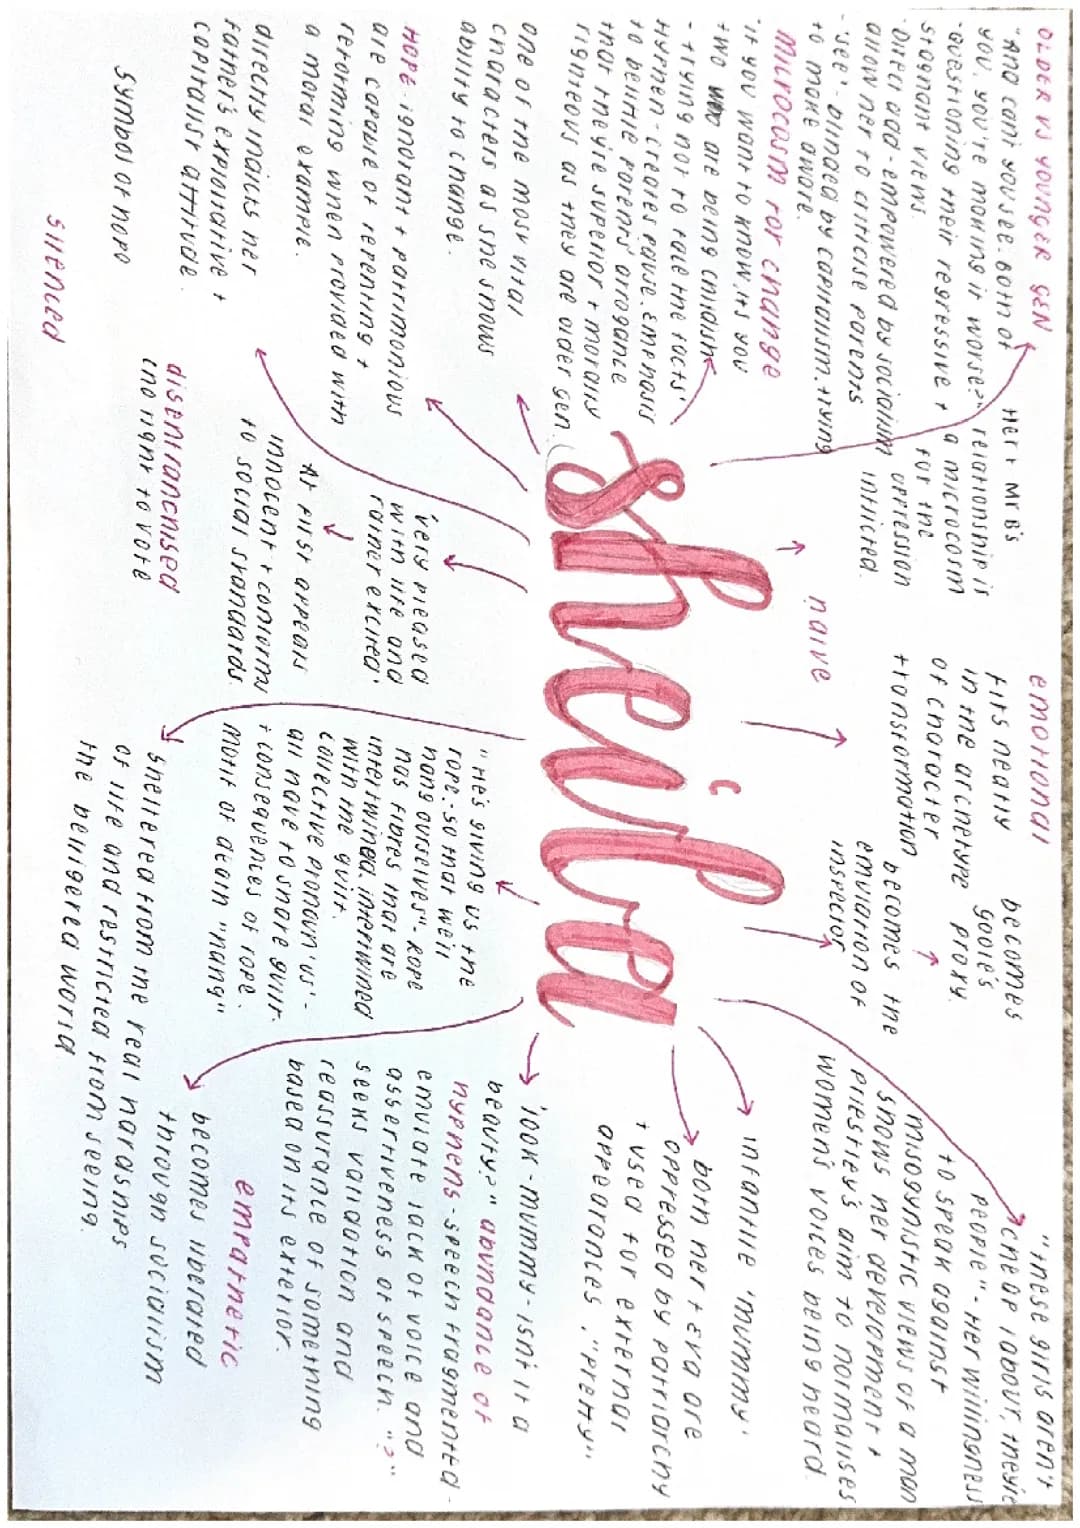 OLDER VS YOUNGER GEN
"And can't you see. Both of
you, you're making it worse?"
questioning their regressive +
stagnant views.
over dad - empowered by socialism
allow her to criticise parents
'see' - blinded by capitalism. trying
to make aware.
Her + Mr B's
relationship is
a microcosm
for the
oppression
inflicted.
microcosm for change
'if you want to know, it's you
two who are being childish
- trying not to face the facts'
Hyphen - creates pause. Emphasis
to belittle parents arrogance
that they're superior + morally
righteous as they are older gen.
one of the most vital
characters as she shows
ability to change.
HOPE ignorant + parsimonious
are capable of repenting +
reforming when provided with
a moral example.
directly indicts her
father's exploitative +
capitalist attitude.
symbol of hope
silenced
disenfranchised
(no right to vote
'very pleased
with life and
rather excited'
At first appears
innocent + conform
to social standards.
Sheila
naive
emotional
fits neatly
in the archetype
of character
transformation
becomes
Goole's
proxy.
becomes the
emulation of
inspector
"He's giving us the
rope - so that we'll
hang ourselves" - Rope
has fibres that are
intertwined, intertwined
with the guilt.
collective pronoun 'us' -
all have to share guilt
+ consequences of rope.
motif of death "hang"
sheltered from the real harships
of life and restricted from seeing
the beligered world
"these girls aren't
cheap labour, they're
people" - Her willingness
to speak against
misogynistic views of a man
shows her development +
Priestley's aim to normalises
women's voices being heard.
infantile 'mummy'
both her + Eva are
oppressed by patriarchy
+ used for external
appearances. "Pretty"
'look - mummy - isn't it a
beauty?' abundance of
hyphens - speech fragmented -
emulate lack of voice and
assertiveness of speech. "?"
seeks validation and
reassurance of something
based on its exterior.
empathetic
becomes liberated
through socialism